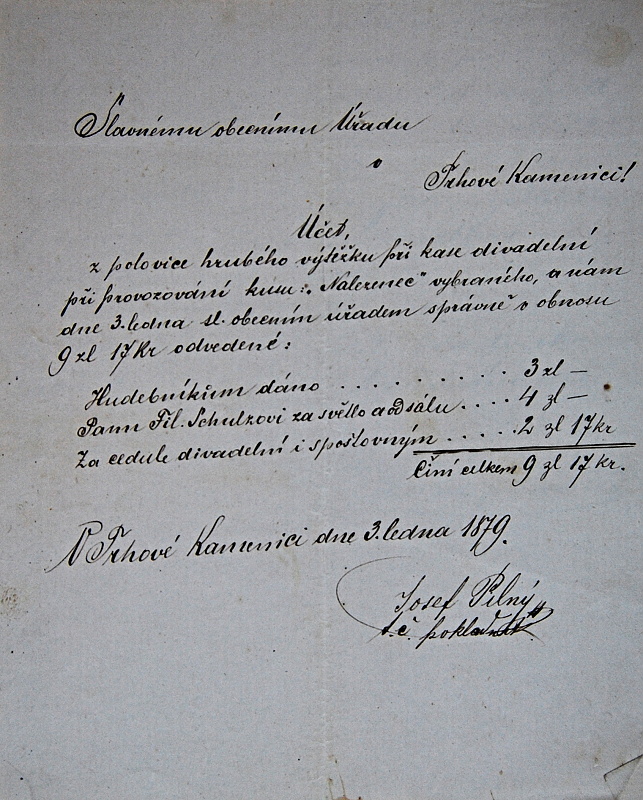 Slavnému obecnímu Úřadu
v
Trhové Kamenici!
Účet,
z polovice hrubého výtěžku při kase divadelní
při provozování kusu: „Nalezenec" vybraného, a nám
dne 3. ledna sl. obecním úřadem správně v obnosu
9 zl 17 Kr odvedené:
Hudebníkům dáno . . . . . . . . . . 3 zl —
Panu Fil. Schulzovi za světlo a od sálu . . . . 4 zl —
Za cedule divadelní i s poštovným . . . . . 2 zl 17 Kr
Činí celkem 9 zl 17 kr.
V Trhové Kamenici dne 3. ledna 1879.
Josef Pilný
t. č. pokladník